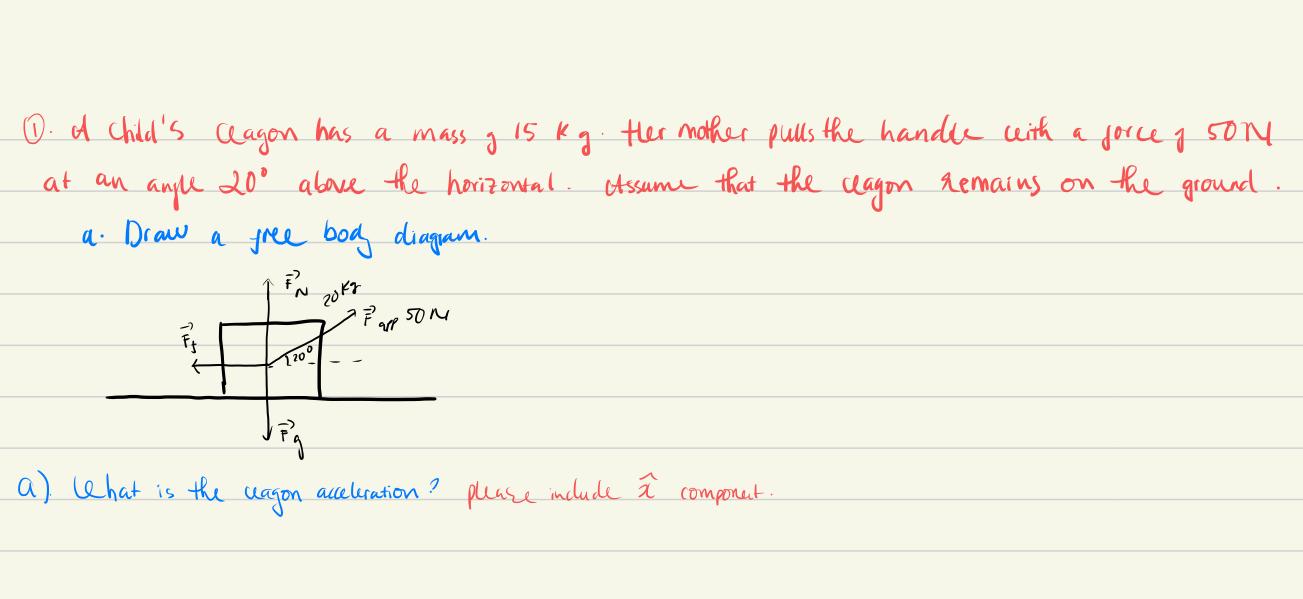 ①. A child's wagon has a mass of 15 Kg. Her mother pulls the handle with a force of 50N
at an angle 20° above the horizontal. Assume that the wagon remains on the ground.
a. Draw a free body diagram.
F⃗N
20 Kg
F⃗app 50 N
F⃗f
20°
F⃗g
a). What is the wagon acceleration? please include x̂ component.